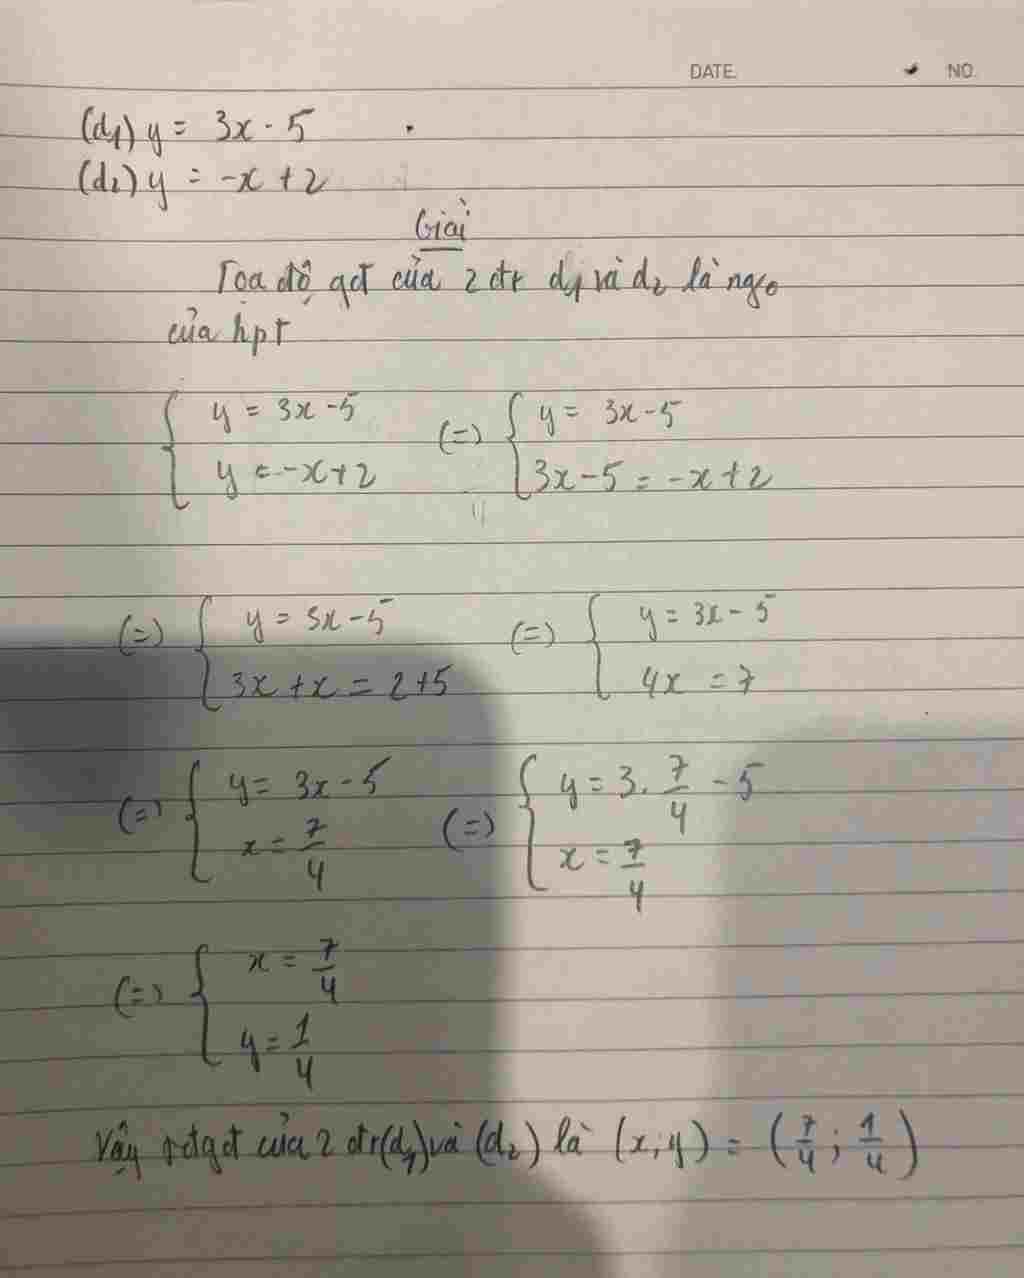 DATE. NO.
(d₁) y = 3x - 5
(d₂) y = -x + 2
Giải
Tọa độ gđ của 2 đt d₁ và d₂ là ngo
của hpt
{ y = 3x - 5 (=) { y = 3x - 5
{ y = -x + 2 { 3x - 5 = -x + 2
(=) { y = 3x - 5 (=) { y = 3x - 5
{ 3x + x = 2 + 5 { 4x = 7
(=) { y = 3x - 5 (=) { y = 3. 7/4 - 5
{ x = 7/4 { x = 7/4
(=) { x = 7/4
{ y = 1/4
Vậy tđgđ của 2 đt (d₁) và (d₂) là (x; y) = (7/4 ; 1/4)